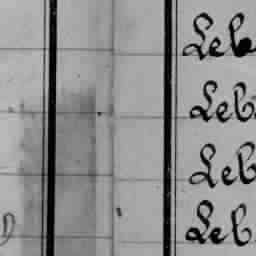 Leb
Leb.
Leb
Leb.